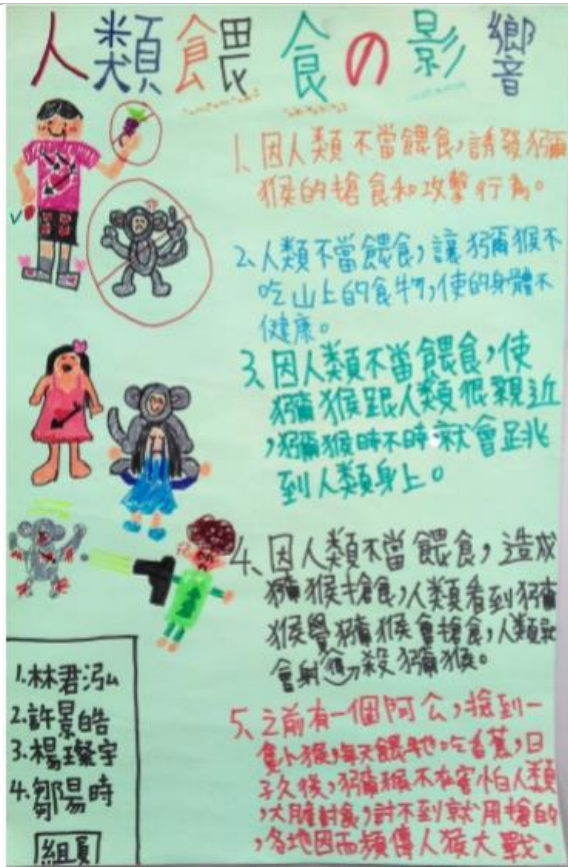 人類餵食の影響
1、因人類不當餵食,誘發獼
猴的搶食和攻擊行為。
2、人類不當餵食,讓獼猴不
吃山上的食物,使的身體不
健康。
3、因人類不當餵食,使
獼猴跟人類很親近
,獼猴時不時就會跳
到人類身上。
4、因人類不當餵食,造成
獼猴搶食,人類看到獼
猴覺獼猴會搶食,人類就
會射殺獼猴。
5、之前有一個阿公,撿到一
隻小猴,每天餵牠吃香蕉,日
子久後,獼猴不在害怕人類
,大膽討食,討不到就用搶的
,各地因而頻傳人猴大戰。
1.林君泓
2.許景皓
3.楊璨宇
4.鄒昜時
組員